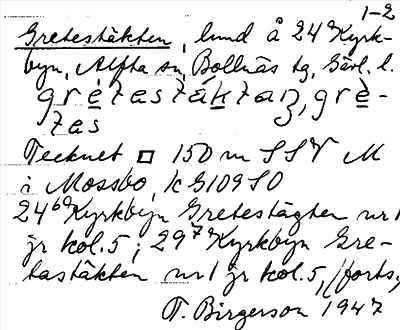 1-2
Gretestäkten, lund å 24 Kyrk-
byn, Alfta sn, Bollnäs tg, Gävl. l.
gre̱tastäḵtaɲ, grè-
tas
Tecknet □ 150 m SSV M
i Mossbo, k G109 SO
24⁶⁹ Kyrkbyn Gretestägten nr 1
jr kol. 5; 29⁷⁹ Kyrkbyn Gre-
tastäkten nr 1 jr kol. 5, (forts.
T. Birgerson 1947